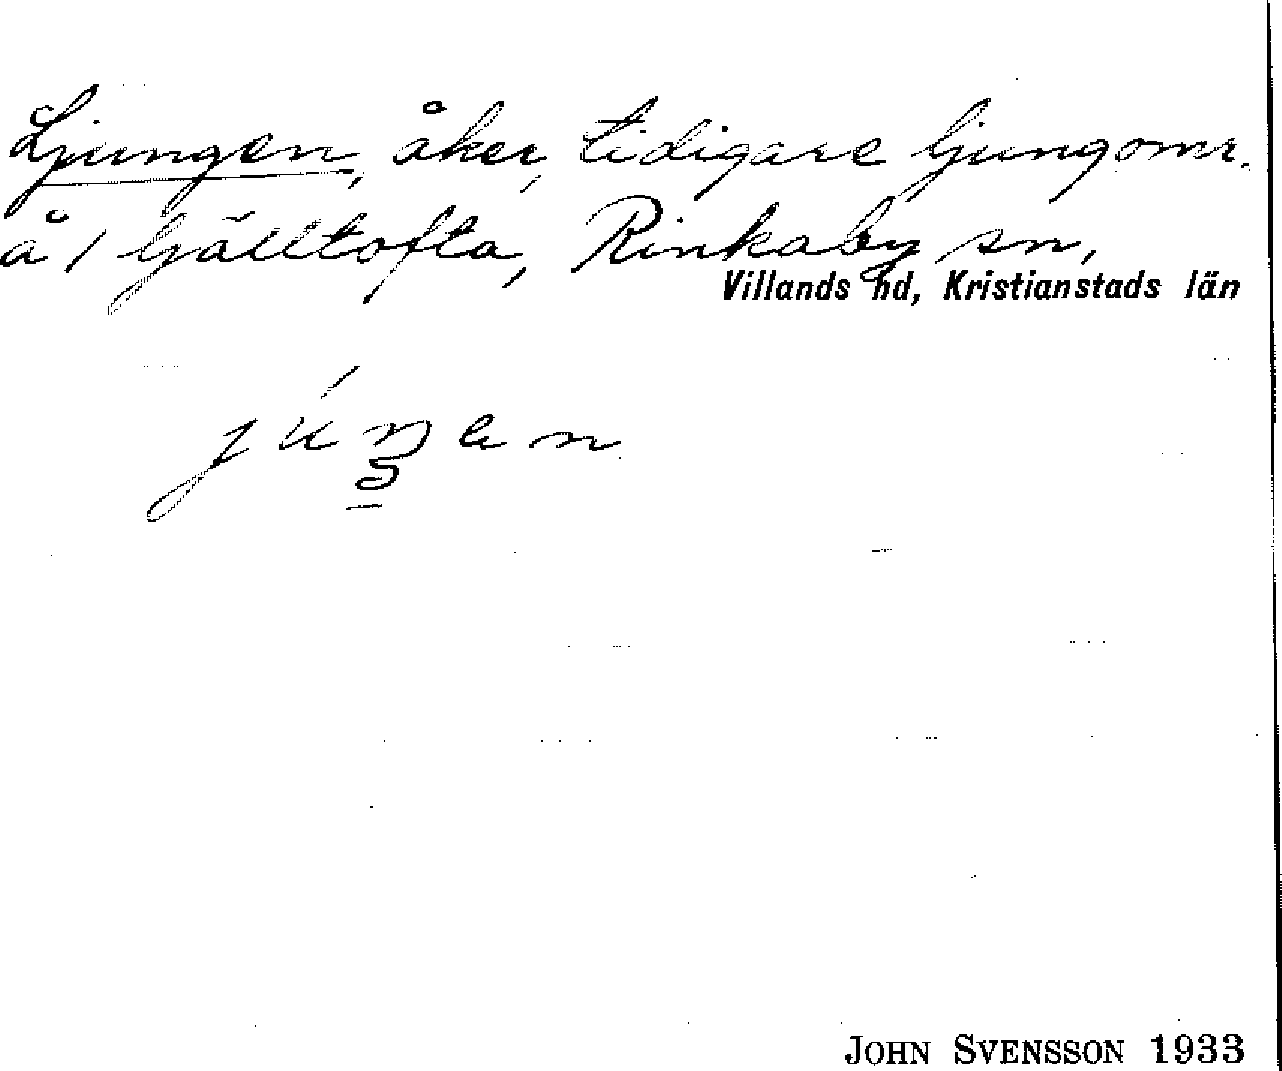 Ljungen, åker, tidigare ljungomr.
å 1 Ljälltofta, Rinkaby sn,
Villands hd, Kristianstads län
JOHN SVENSSON 1933